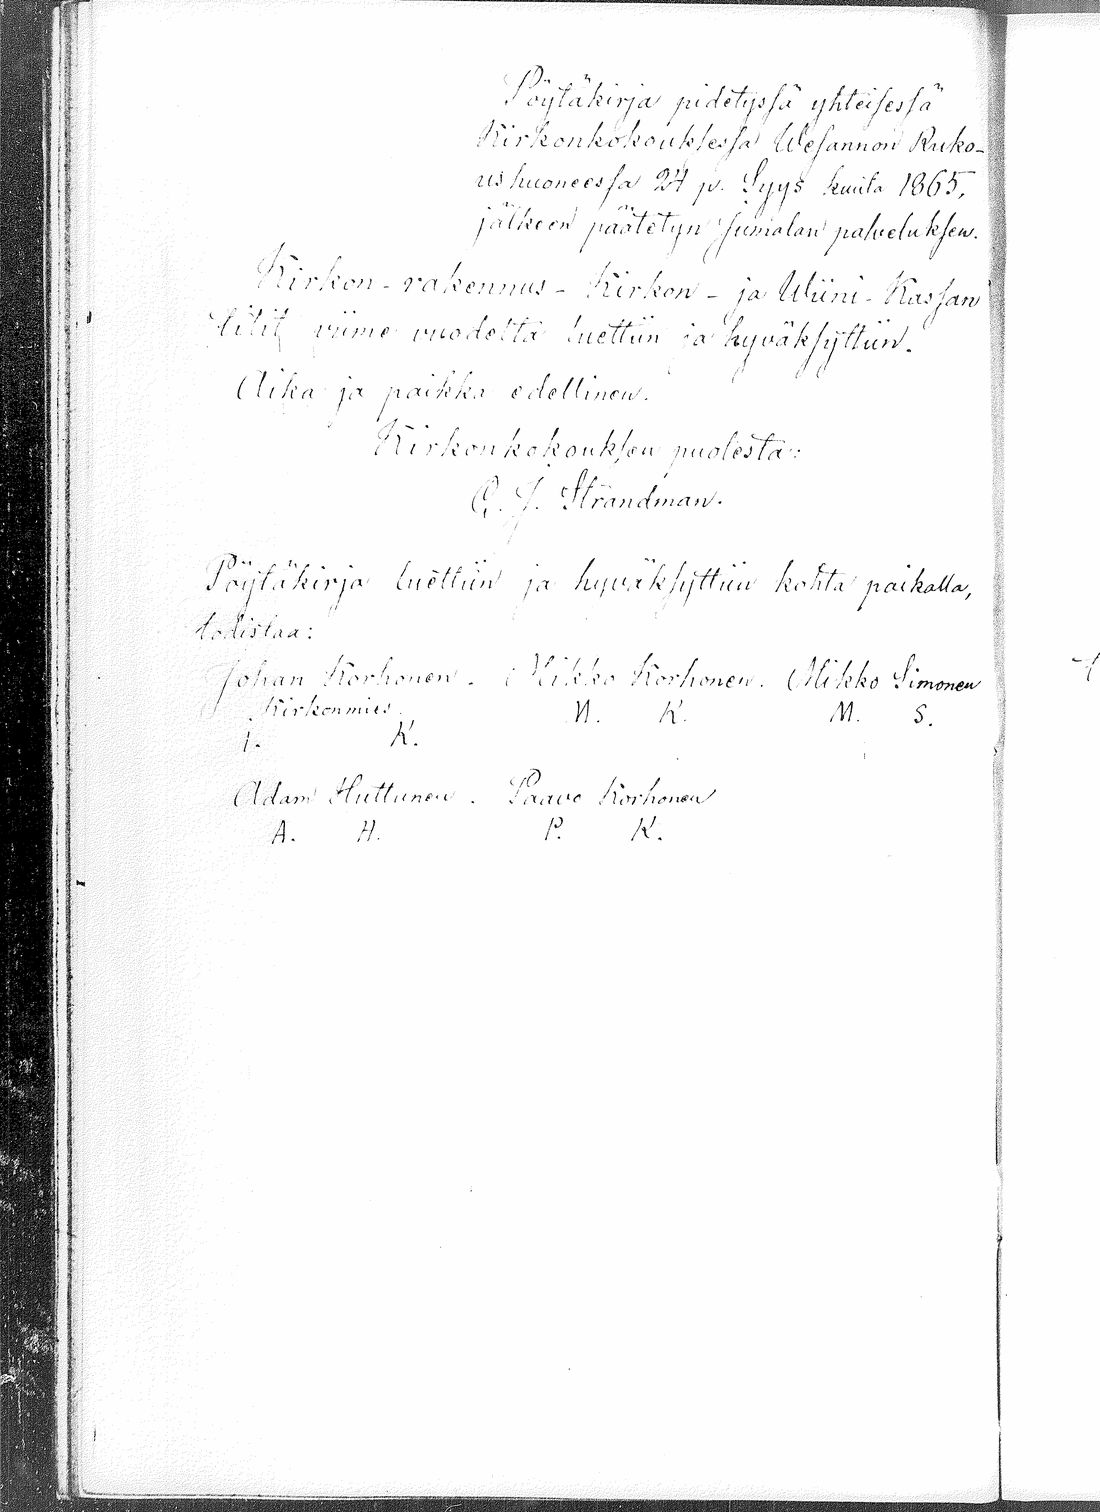 Pöytäkirja pidetyssä yhteisessä
Kirkonkokouksessa Wesannon Ruko-
ushuoneessa 24 p. Syys kuuta 1865,
jälkeen päätetyn Jumalan palveluksen.
Kirkon-rakennus- Kirkon- ja Wiini-Kassan
tilit viime vuodelta luettiin ja hyväksyttiin.
Aika ja paikka edellinen.
Kirkonkokouksen puolesta:
G. J. Strandman.
Pöytäkirja luettiin ja hyväksyttiin kohta paikalla,
todistaa:
Johan Korhonen. Mikko Korhonen. Mikko Simonen
Kirkonmies. M. K. M. S.
I. K.
Adam Huttunen. Paavo Korhonen
A. H. P. K.